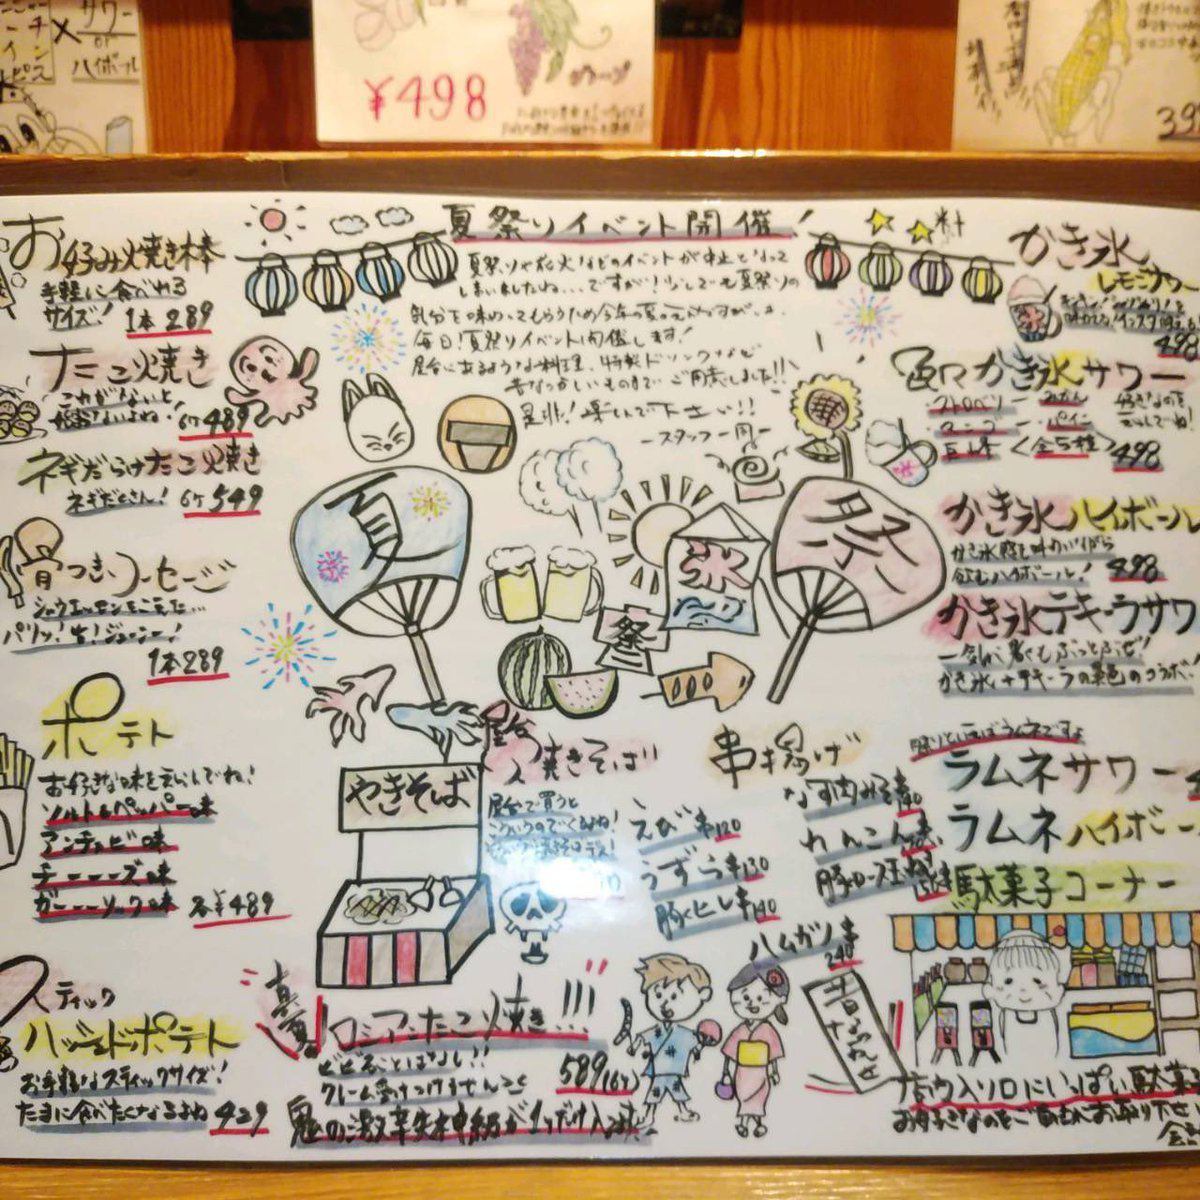 サワー
or
ハイボール
¥498
グレープ
39
夏祭りイベント開催！
夏祭りや花火などのイベントが中止となって
しまいましたね…ですが！少しでも夏祭りの
気分を味わってもらうため今年の夏の
毎日！夏祭りイベント開催します！
屋台にあるような料理、特製ドリンクなど
昔なつかしいものまでご用意しました！！
是非！楽しんで下さい！！
－スタッフ一同－
お好み焼き棒
手軽に食べれる
サイズ！ 1本289
たこ焼き
これがないと
6ケ 489
ネギだらけたこ焼き
ネギだくさん！ 6ケ 549
骨つきソーセージ
シャウエッセンをこえた…
パリッ！ジューシー！
1本289
ポテト
お好きな味をえらんでね！
ソルト&ペッパー味
アンチョビ味
チーーーズ味
ガーーーリック味 各¥489
スティック
ハッシュドポテト
お手軽なスティックサイズ！
たまに食べたくなるよね 429
夏
祭
氷
祭
やきそば
屋台
焼きそば
屋台で買うと
串揚げ
えび串120
うずら串130
豚ヒレ串140
なす肉みそ串140
れんこん串
豚ロース玉ねぎ串
ハムカツ串
240
真夏のロシアンたこ焼き!!!
ビビることはなし！！
クレーム受けつけませんこと
589(6ケ)
鬼の激辛失神級が1つだけ入
かき氷
レモンサワー
498
かき氷サワー
ストロベリー みかん
マンゴー パイン
巨峰 <全5種> 498
かき氷ハイボール
かき氷感を味わいながら
飲むハイボール！ 498
かき氷テキーラサワ
一気に暑くもぶっとぶぜ！
かき氷＋テキーラの異色のコラボ
祭りといえばラムネですよ
ラムネサワー
ラムネハイボー
駄菓子コーナー
店内入り口にいっぱい駄菓